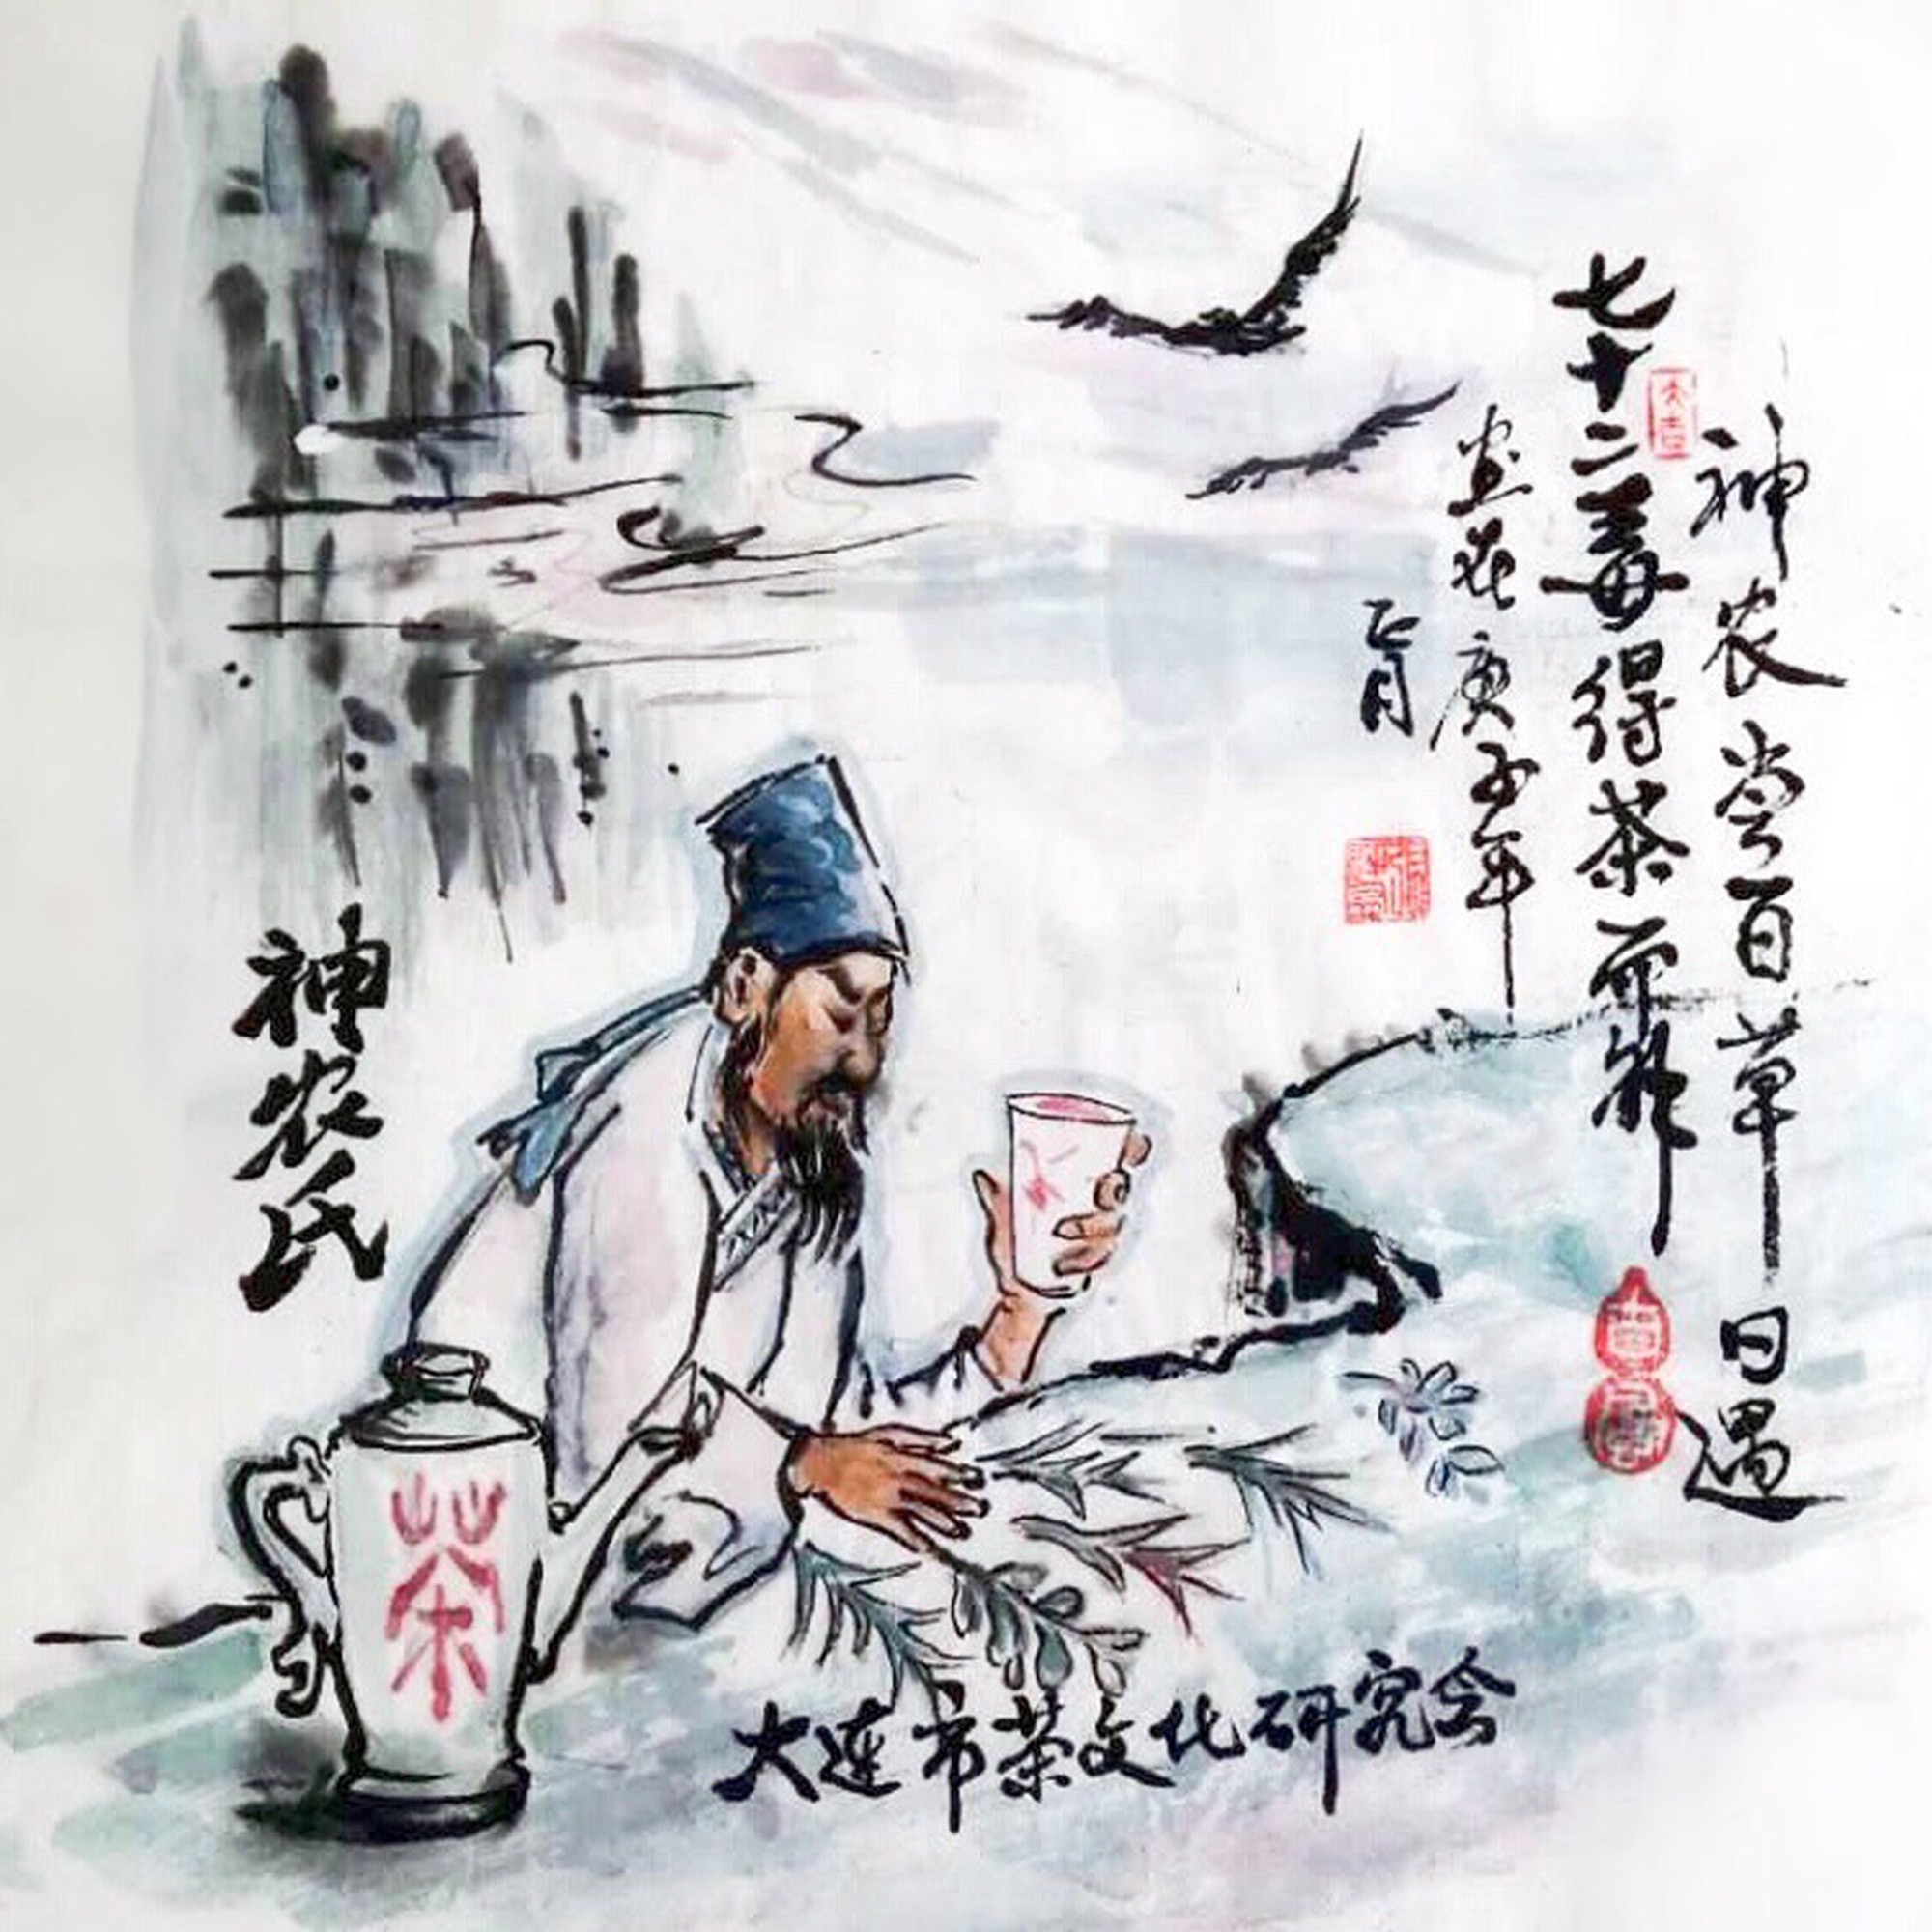 神农尝百草日遇
七十二毒得茶而解
大吉
画庚子年
正月
神农氏
茶
大连市茶文化研究会